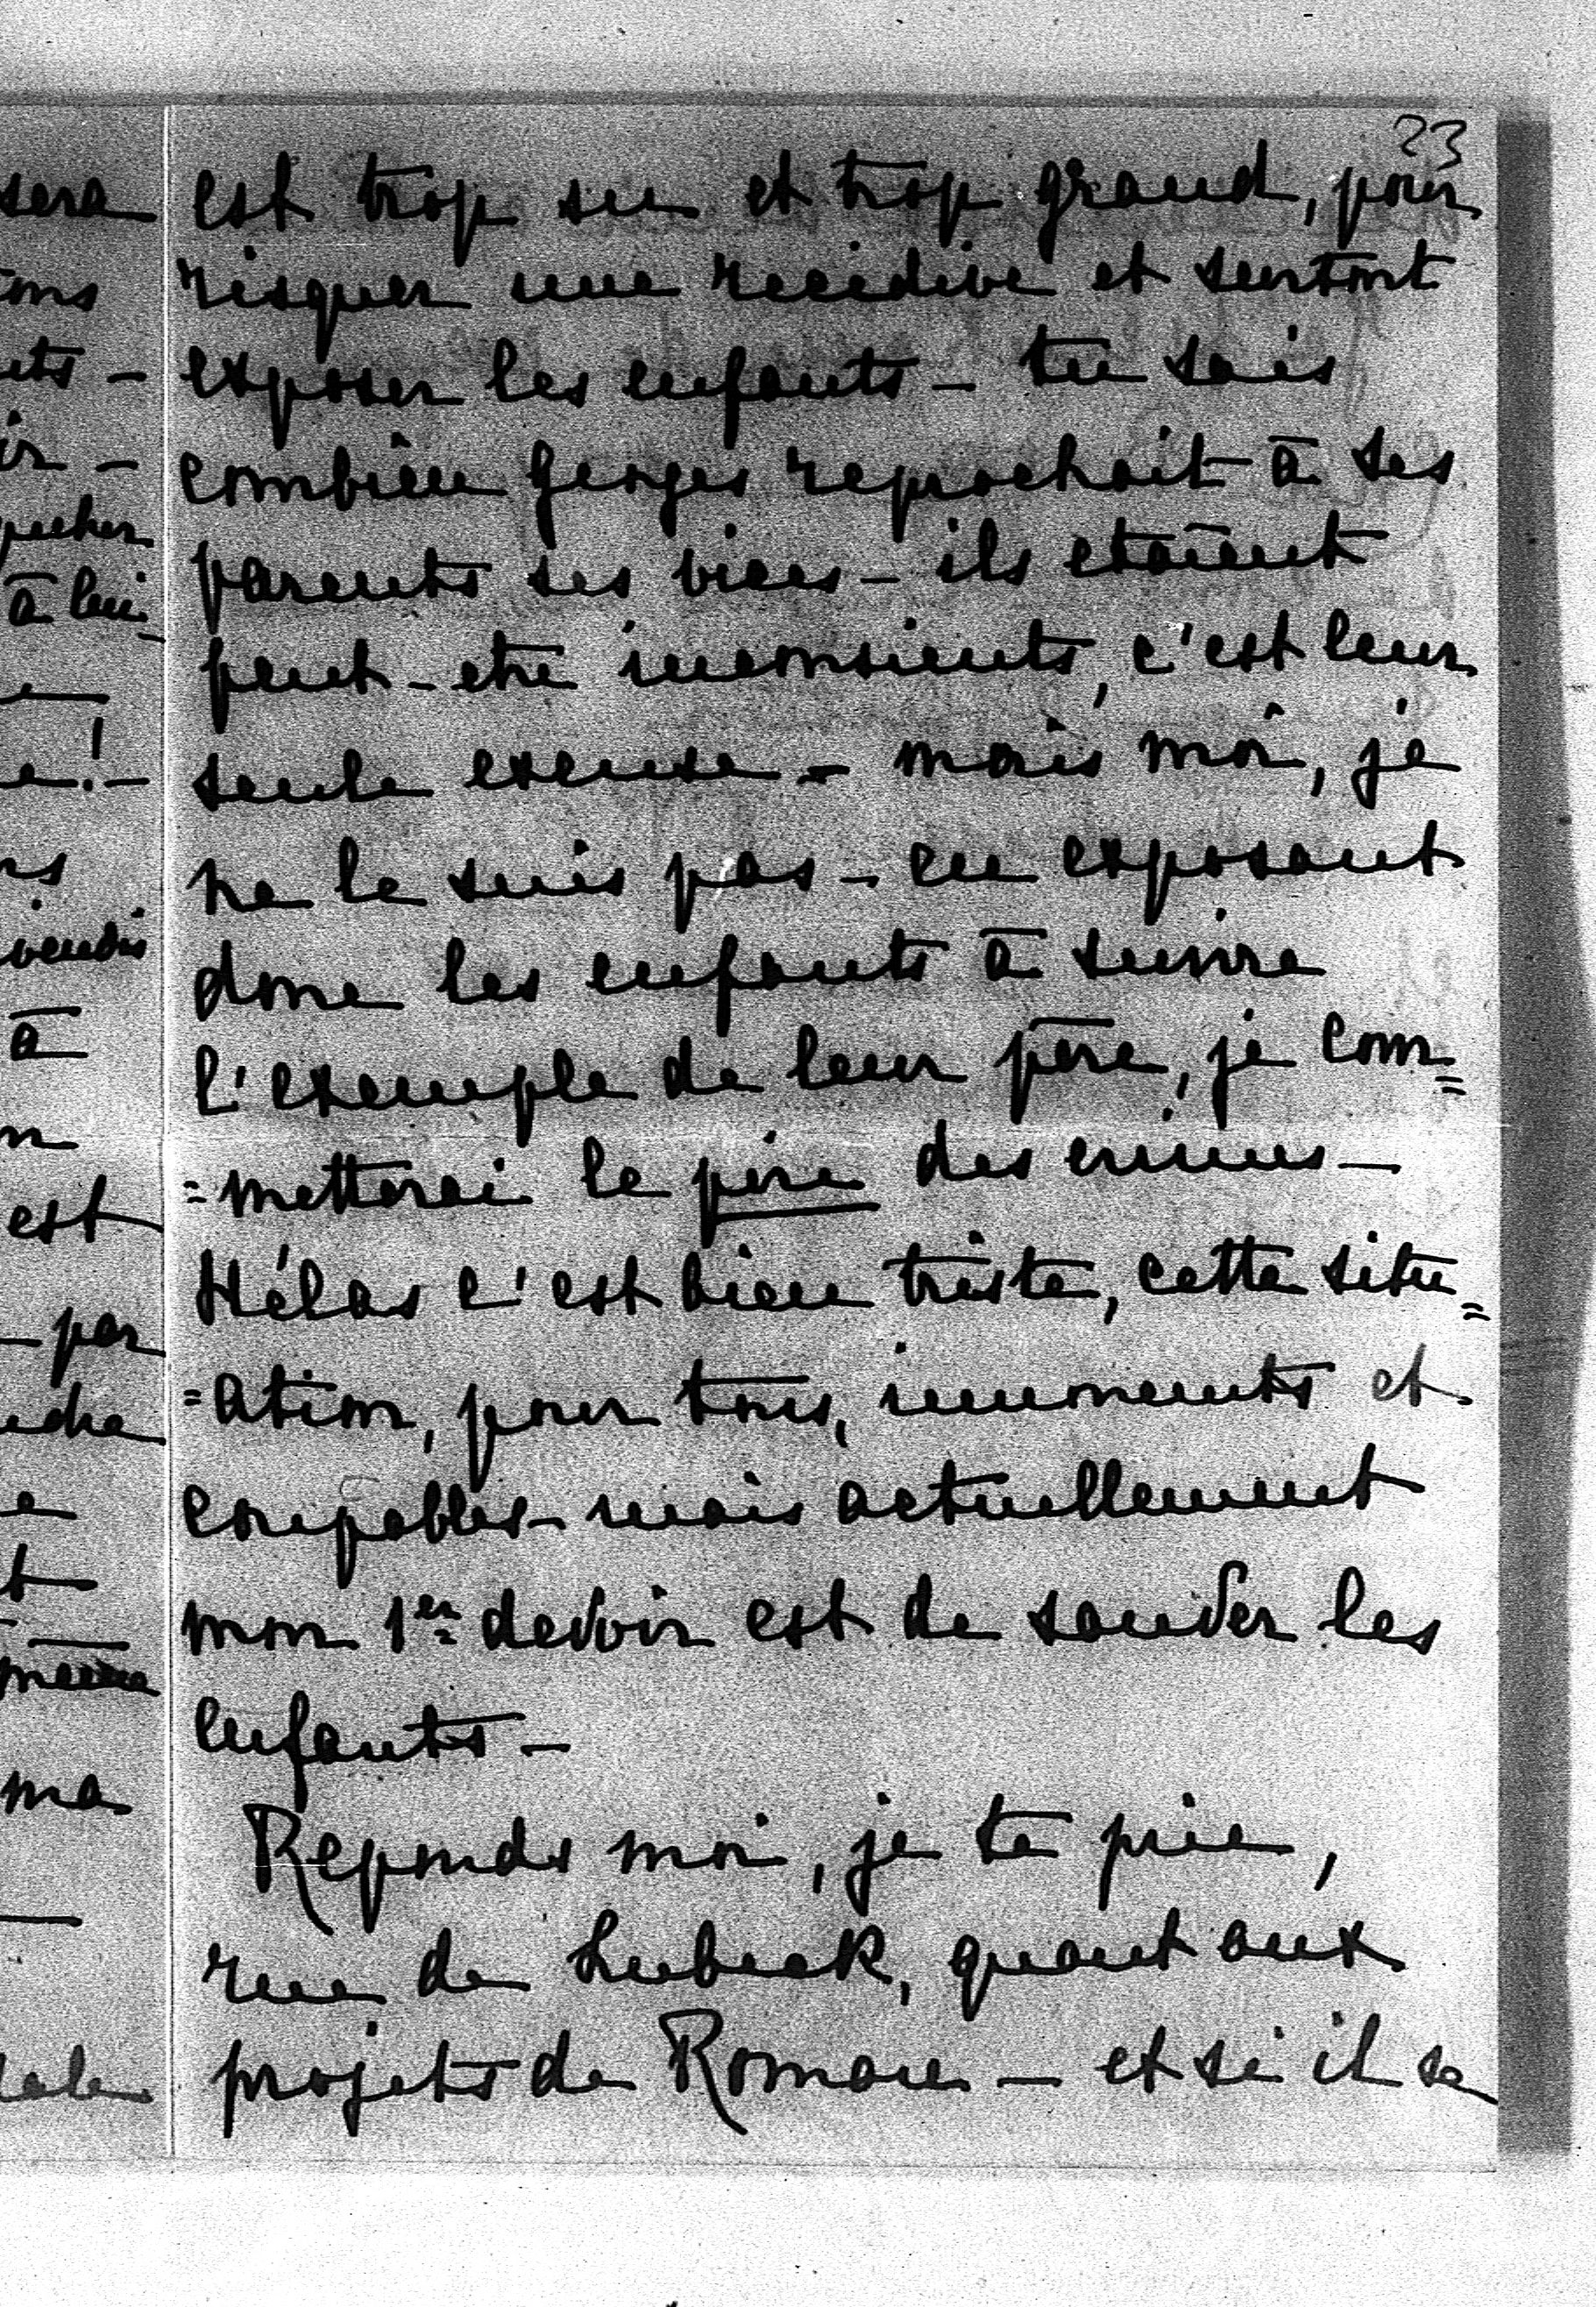 23
est trop su et trop grand, pour
risquer une recidive et surtout
exposer les enfants – tu sais
combien Georges reprochait à ses
parents ses vices – ils etaient
peut-etre inconsients, c'est leur
seule excuse – mais moi, je
ne le suis pas – en exposant
donc les enfants à suivre
l'exemple de leur père, je com=
=metterai le pire des crimes –
Hélas c'est bien triste, cette situ=
=ation, pour tous, innonents et
coupables – mais actuellement
mon 1er devoir est de sauver les
enfants –
Reponds moi, je te prie,
rue de Lubeck, quant aux
projets de Romain – et si il se
sera
à lui
à
est
– par
ma